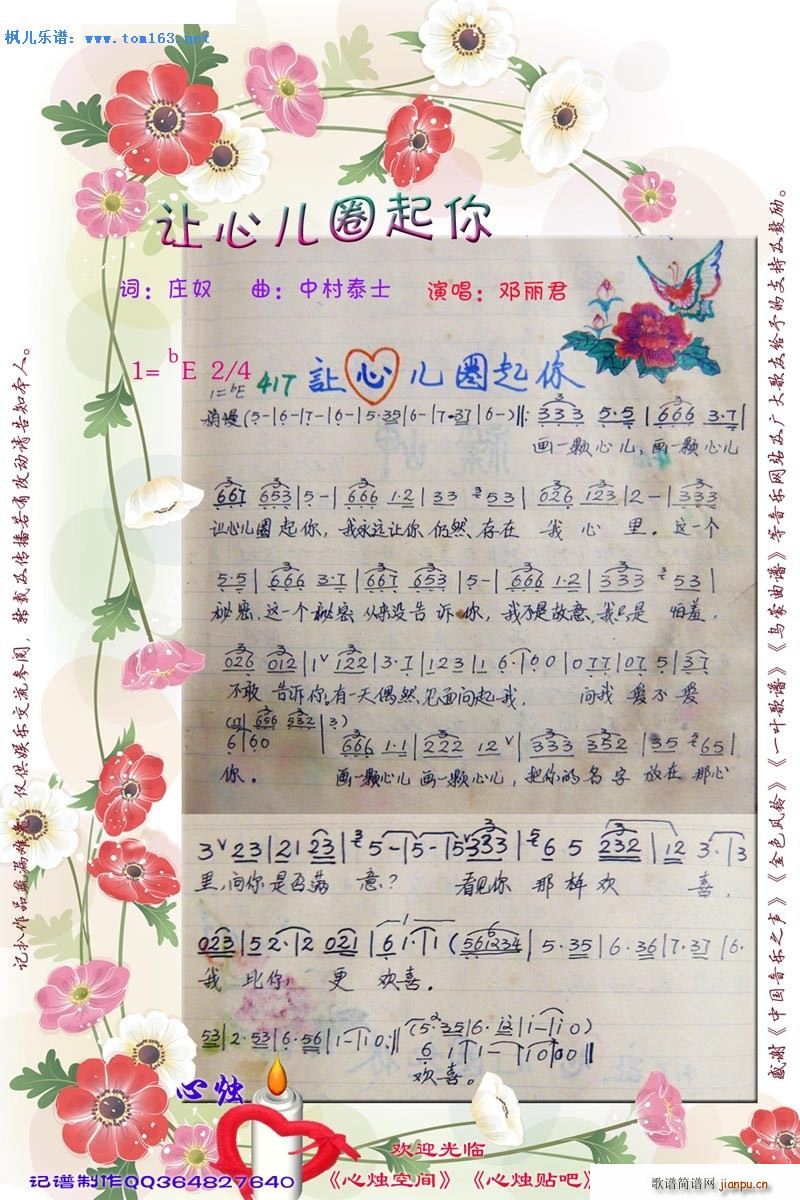 枫儿乐谱：www.tom163.net
让心儿圈起你
词：庄奴 曲：中村泰士 演唱：邓丽君
1=bE 2/4
417 讓心儿圈起你
1=bE
浪慢(5-|6-|7-|6-|5·35|6-|7·37|6-)‖: 333 5·5|666 3·7|
画一颗心儿，画一颗心儿
667 653|5-|666 1·2|33 53|026 123|2-|333
让心儿圈起你，我永远让你仍然存在我心里。这一个
5·5|666 3·7|667 653|5-|666 1·2|333 53|
秘密，这一个秘密从来没告诉你，我不是故意，我只是怕羞，
026 012|1 122|3·7|123|1 6·|60 0|077|07 5|37
不敢告诉你，有一天偶然见面问起我，问我爱不爱
6|60 666 1·1|222 12|333 352|35 65|
你。画一颗心儿画一颗心儿，把你的名字放在那心
3 23|21 23|5-|5-|5 333|6 5 232|12 3·|3
里，问你是否满意？看见你那样欢喜，
023|52·|2 021|6 1·|1(561234|5·35|6·36|7·37|6·
我比你更欢喜。
53|2·53|6·56|1-|10:‖
欢喜。
心烛
欢迎光临
记谱制作QQ364827640
《心烛空间》《心烛贴吧》
歌谱简谱网
jianpu.cn
记扒作品疏漏难免，仅供娱乐交流参阅，转载及传播若有改动请告知本人。
感谢《中国音乐之声》《金色风铃》《一叶歌谱》《乌蒙曲谱》等音乐网站及广大歌友给予的支持及鼓励。